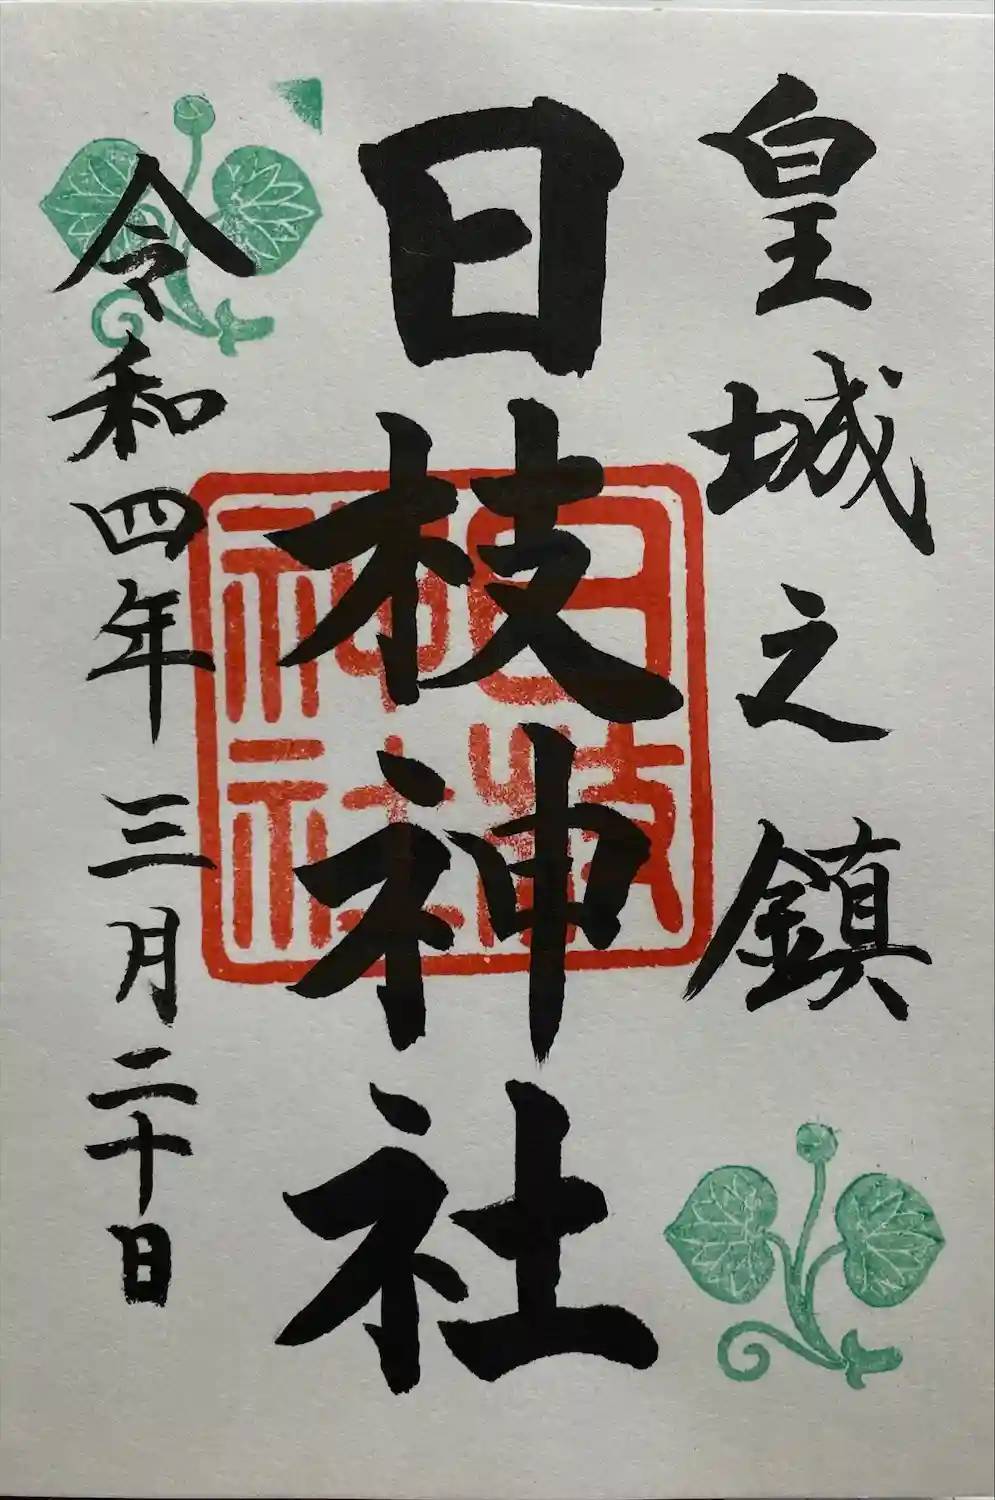 皇城之鎮
日枝神社
令和四年三月二十日
日枝
神社